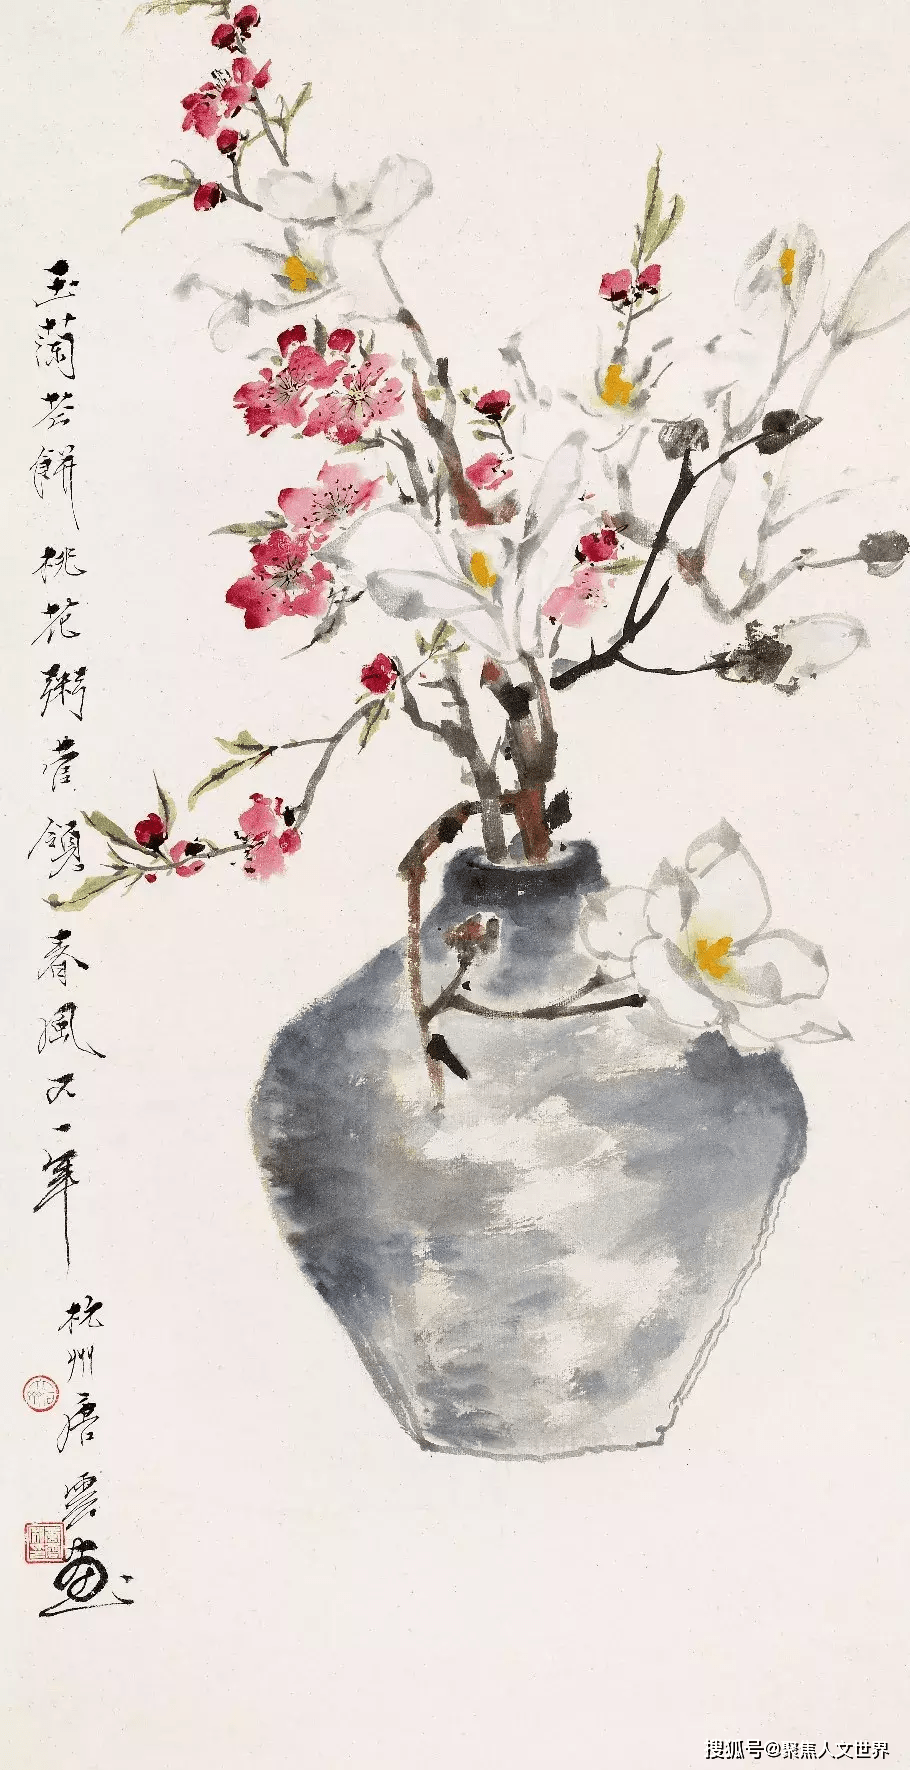 玉蘭餅桃花粥管領春風又一年
杭州唐雲畫
搜狐号@聚焦人文世界